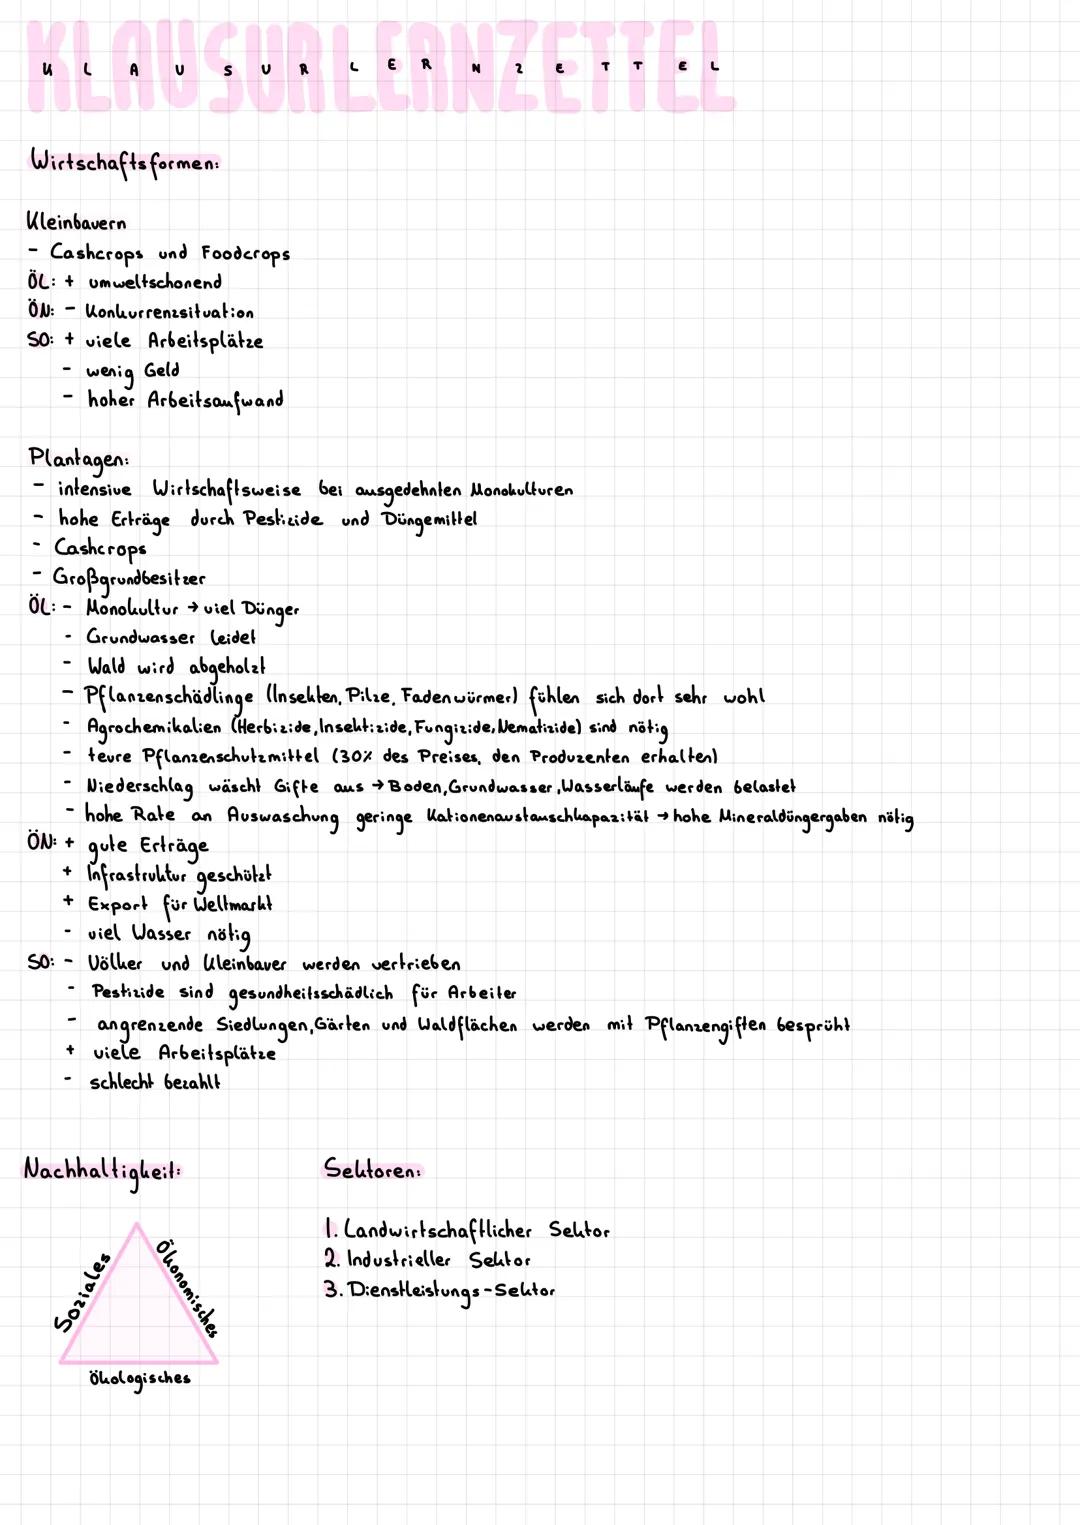 KLAUSURLERNZETTEL
K L A U S U R L E R N Z E T T E L
Wirtschaftsformen:
Kleinbauern
- Cashcrops und Foodcrops
ÖL: + umweltschonend
ÖN: - Konkurrenzsituation
SO: + viele Arbeitsplätze
- wenig Geld
- hoher Arbeitsaufwand
Plantagen:
- intensive Wirtschaftsweise bei ausgedehnten Monokulturen
- hohe Erträge durch Pestizide und Düngemittel
- Cashcrops
- Großgrundbesitzer
ÖL: - Monokultur → viel Dünger
- Grundwasser leidet
- Wald wird abgeholzt
- Pflanzenschädlinge (Insekten, Pilze, Fadenwürmer) fühlen sich dort sehr wohl
- Agrochemikalien (Herbizide, Insektizide, Fungizide, Nematizide) sind nötig
- teure Pflanzenschutzmittel (30% des Preises, den Produzenten erhalten)
- Niederschlag wäscht Gifte aus → Boden, Grundwasser, Wasserläufe werden belastet
- hohe Rate an Auswaschung geringe Kationenaustauschkapazität → hohe Mineraldüngergaben nötig
ÖN: + gute Erträge
+ Infrastruktur geschützt
+ Export für Weltmarkt
- viel Wasser nötig
SO: - Völker und Kleinbauer werden vertrieben
- Pestizide sind gesundheitsschädlich für Arbeiter
- angrenzende Siedlungen, Gärten und Waldflächen werden mit Pflanzengiften besprüht
+ viele Arbeitsplätze
- schlecht bezahlt
Nachhaltigkeit:
Soziales
Ökonomisches
Ökologisches
Sektoren:
1. Landwirtschaftlicher Sektor
2. Industrieller Sektor
3. Dienstleistungs-Sektor